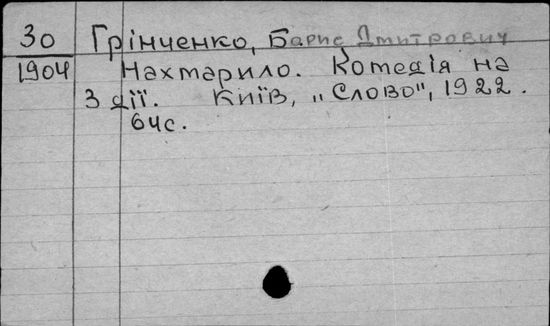 30 Грінченко, Борис Дмитрович
1904 Нахмарило. Комедія на
3 дії. Київ, „Слово", 1922.
64с.